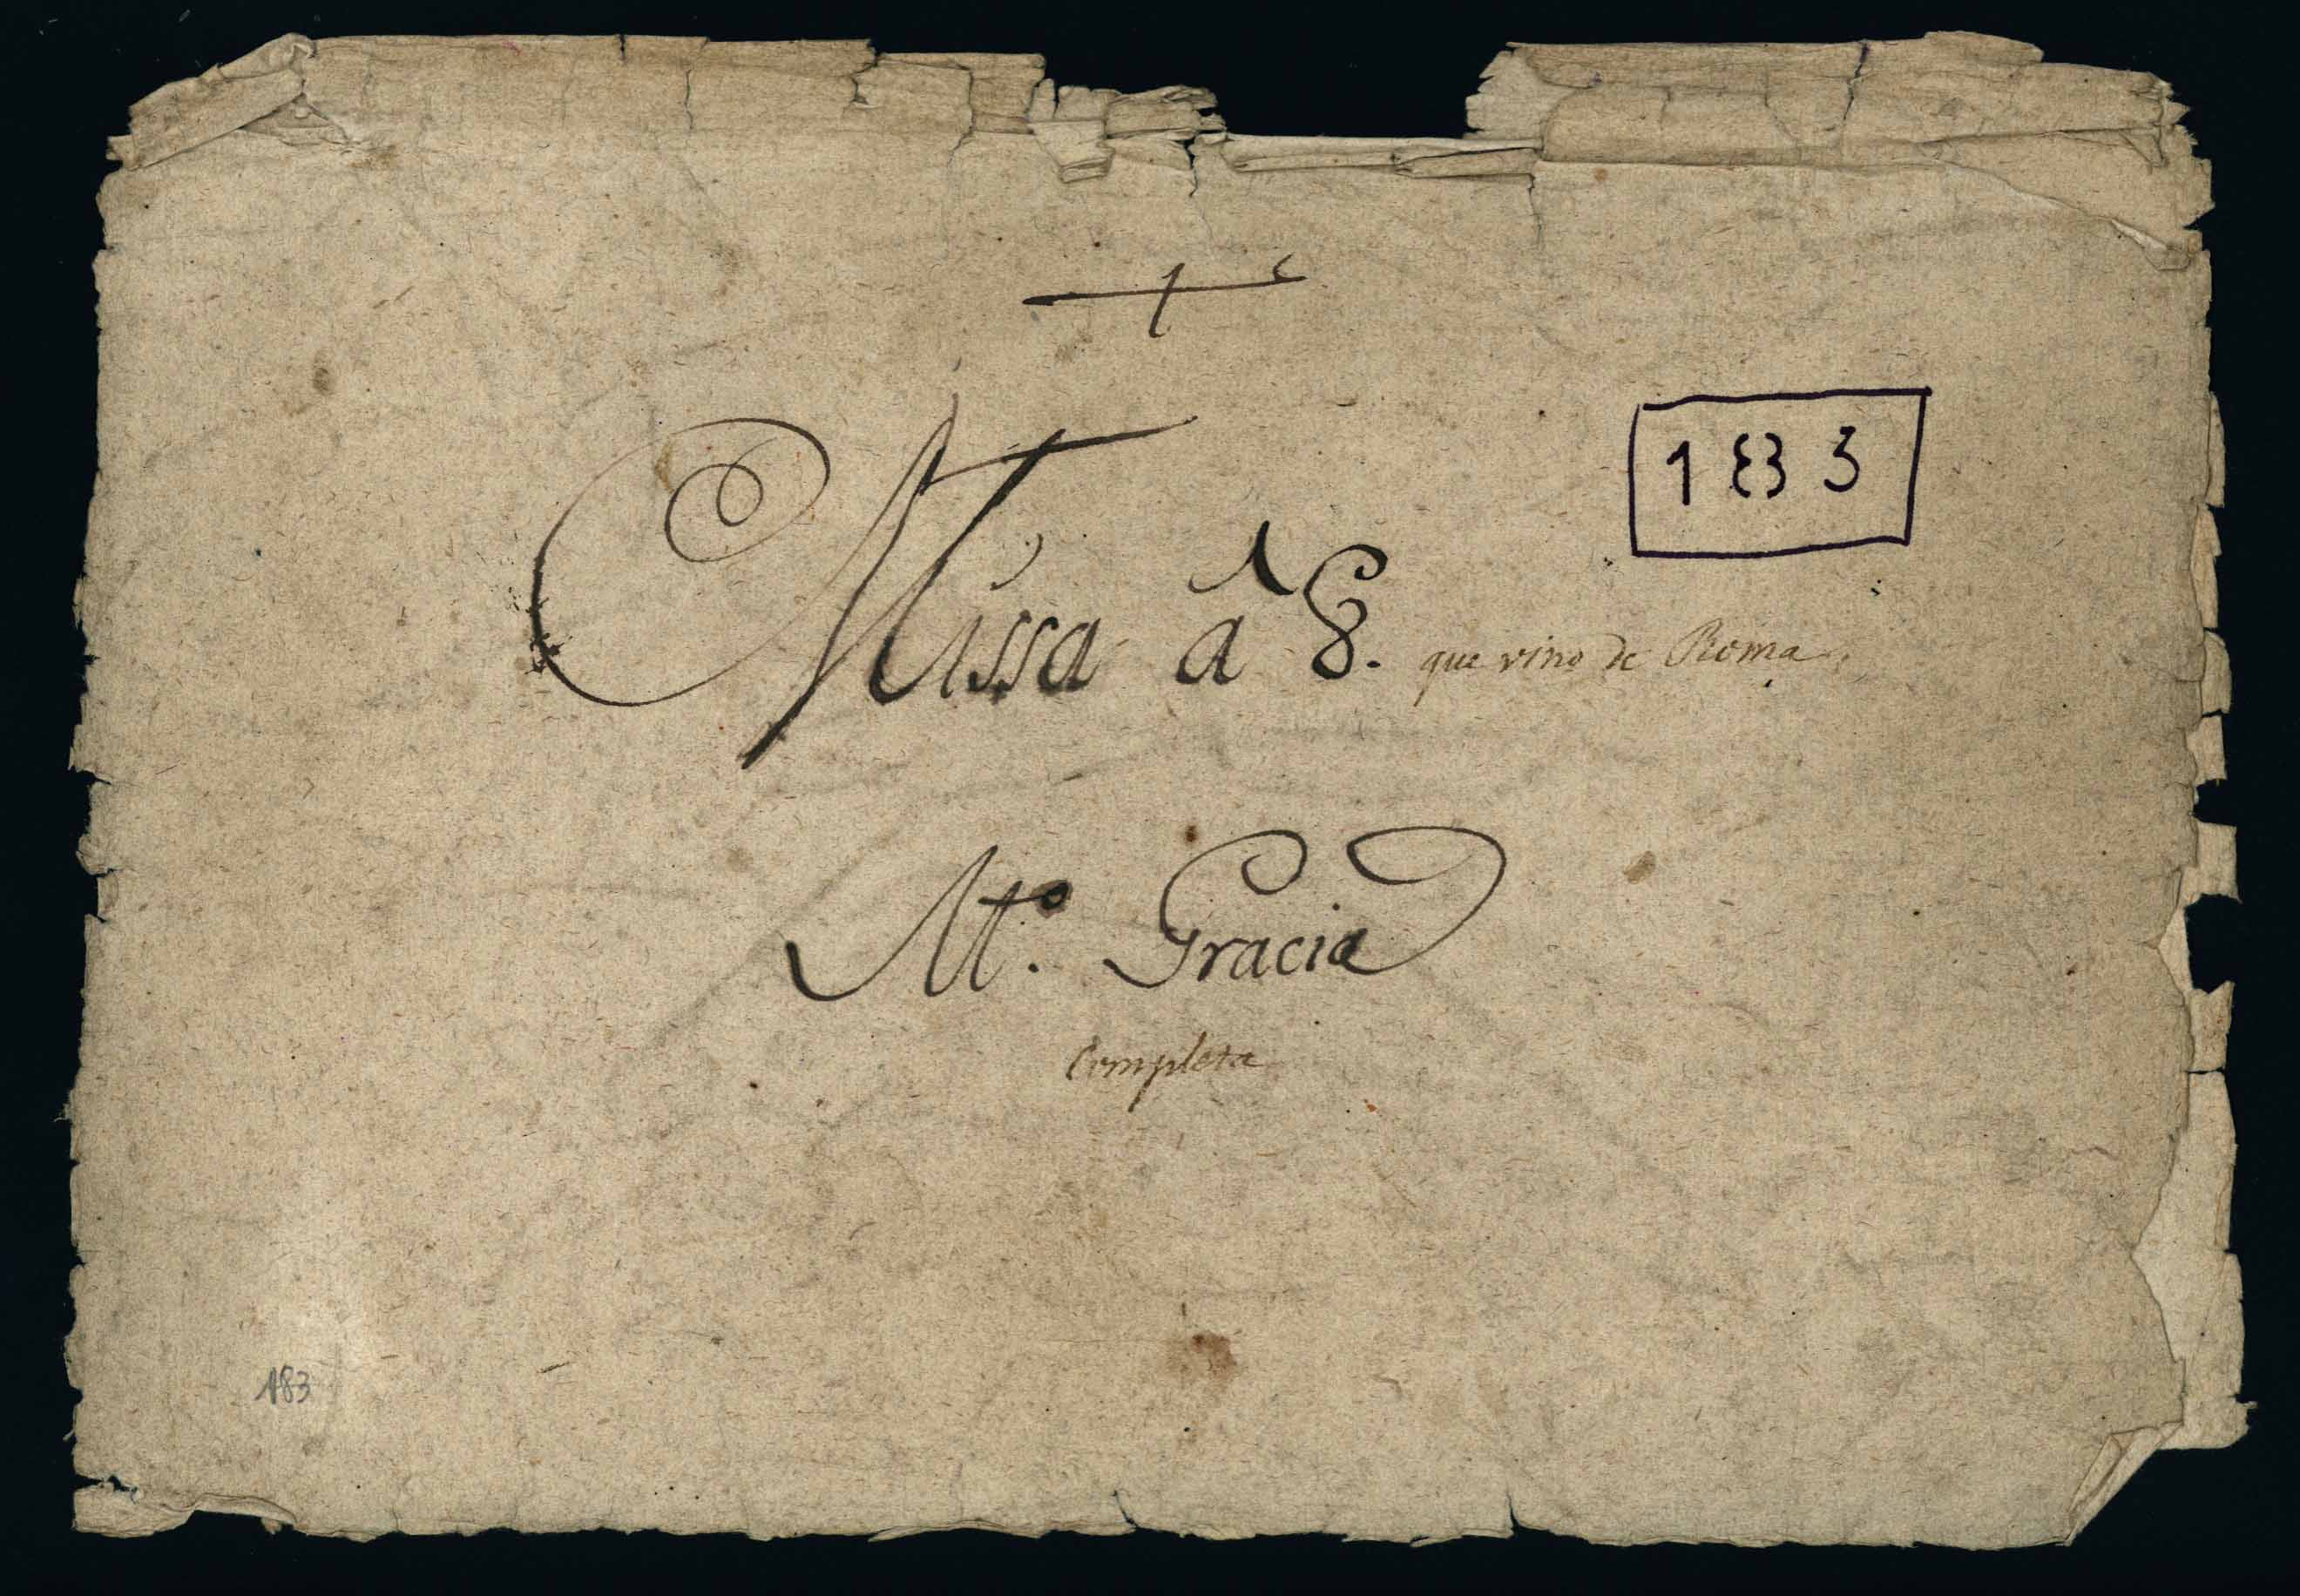 183
Missa â 8. que vino de Roma.
Mt°. Gracia
Completa
183